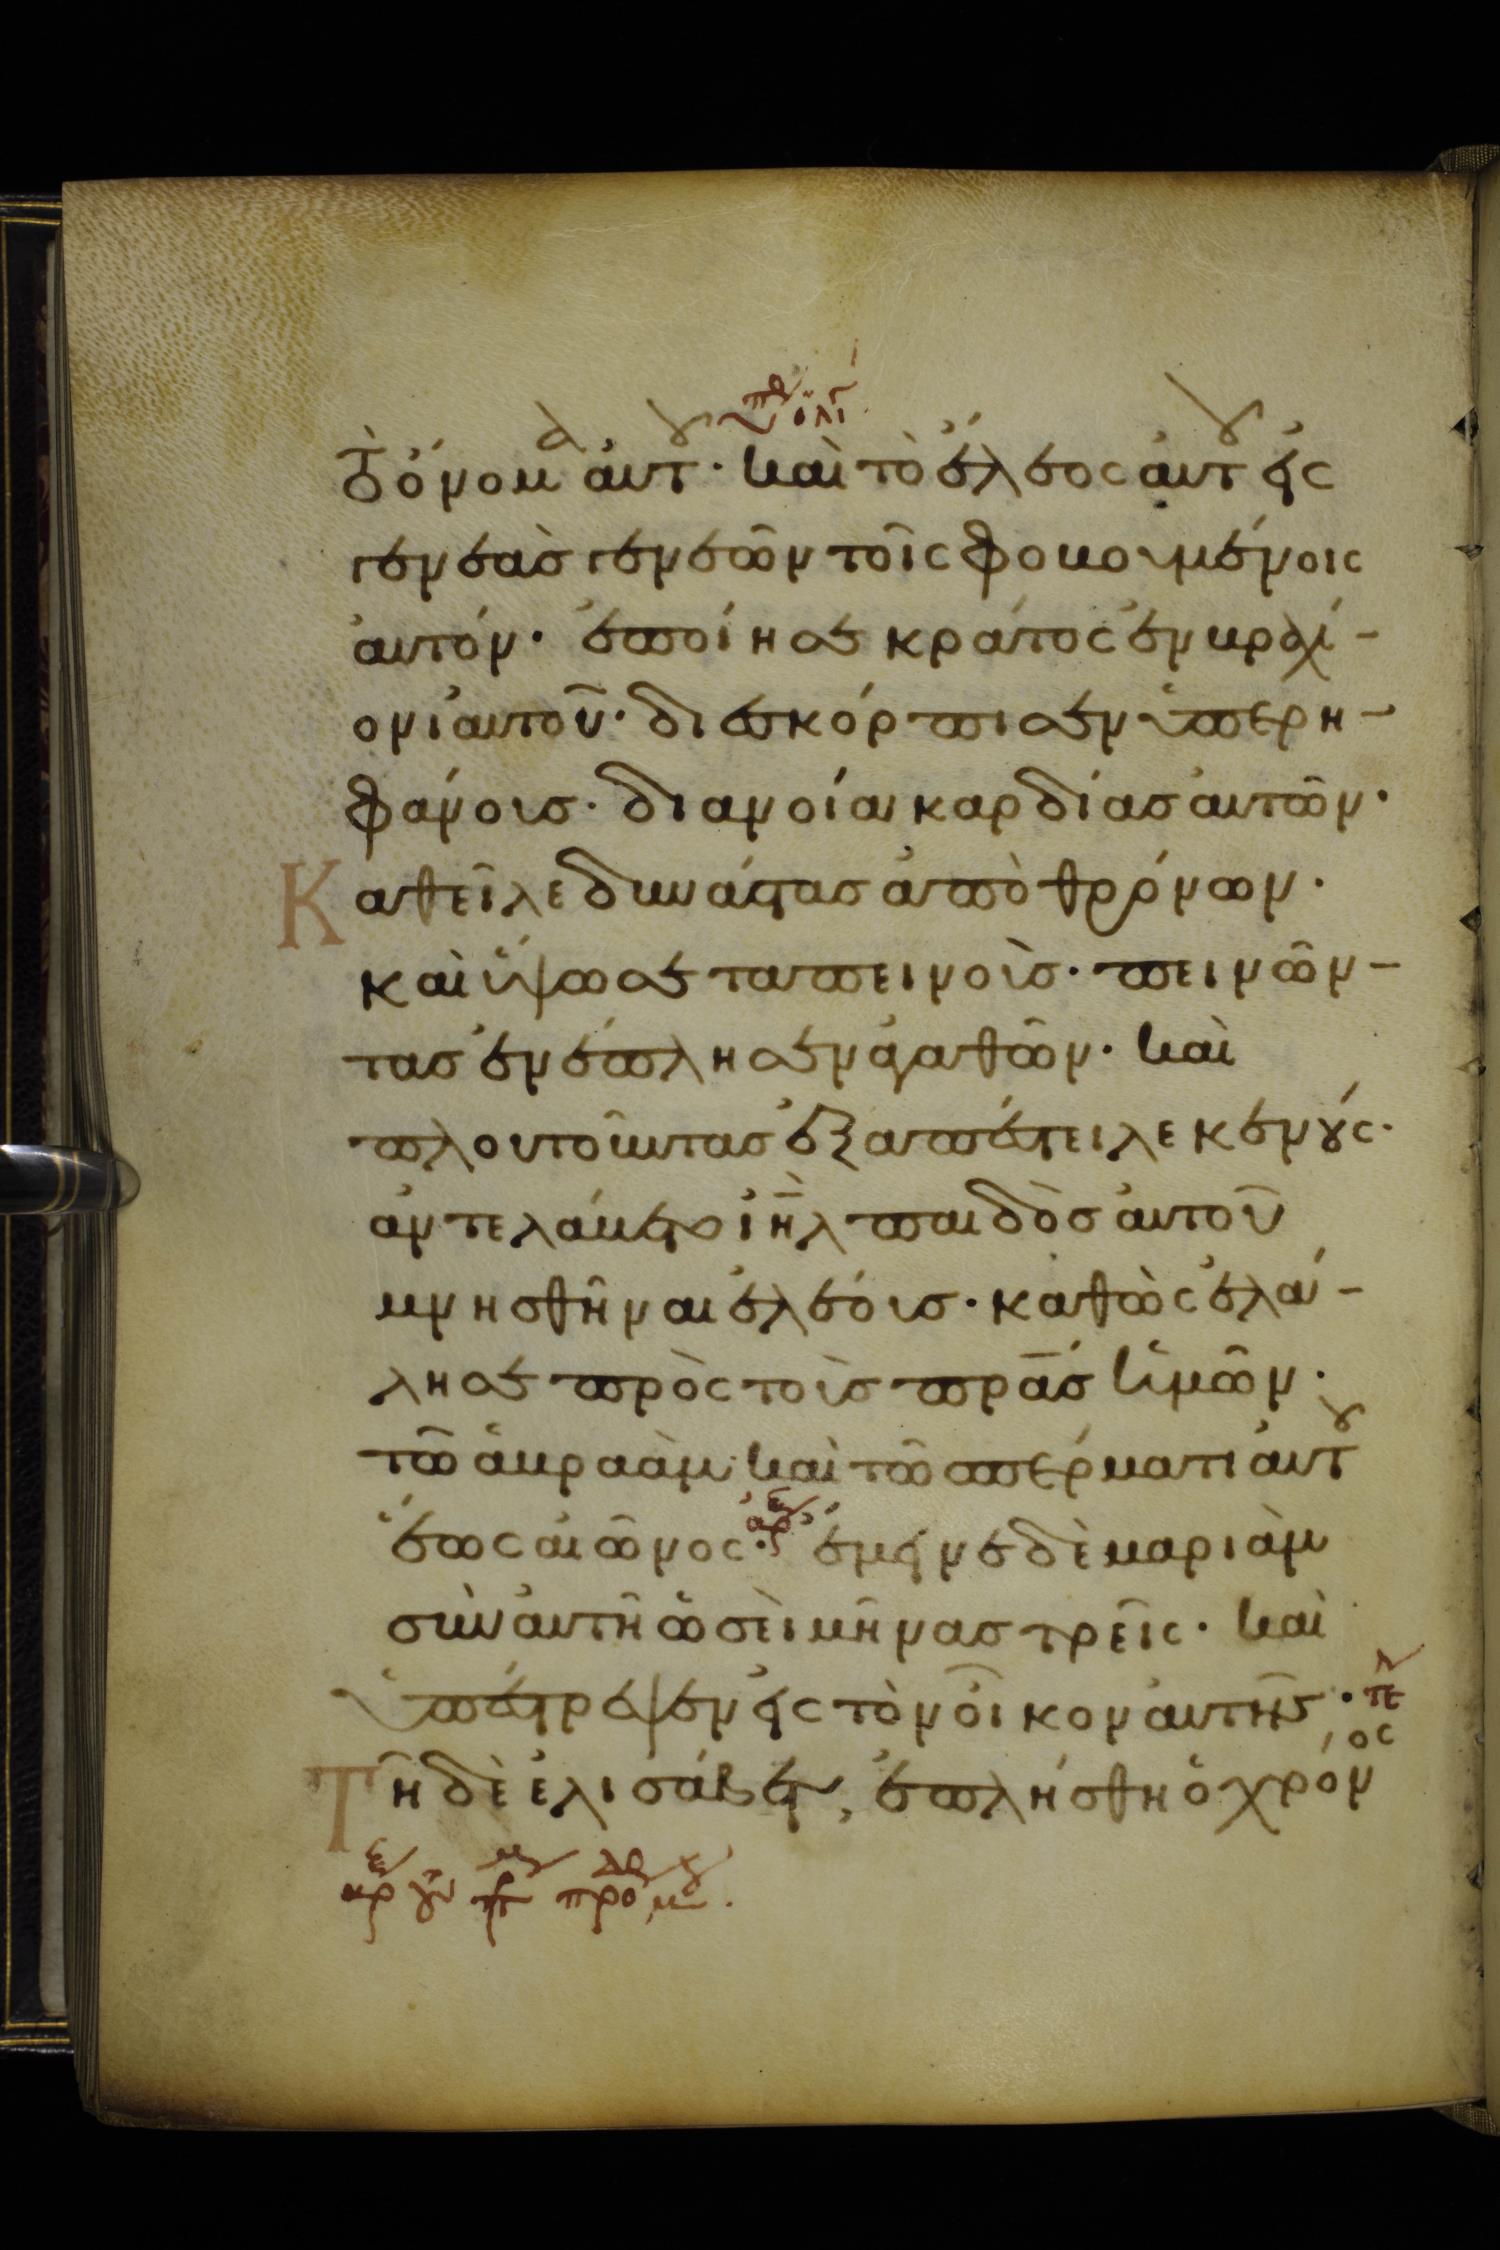 τὸ ὄνομα αὐτοῦ· καὶ τὸ ἔλεος αὐτοῦ εἰς
γενεὰσ γενεῶν τοῖς φοβουμένοις
ἀυτόν· ἐποίησε κράτος ἐν βραχί-
ονι ἀυτοῦ· διεσκόρπισεν ὑπερη-
φάνουσ· διανοία καρδίασ ἀυτῶν·
Καθεῖλε δυνάστασ ἀπὸ θρόνων·
καὶ ὕψωσε ταπεινοὺσ· πεινῶν-
τασ ἐνέπλησεν ἀγαθῶν· καὶ
πλουτοῦντασ ἐξαπέστειλε κενούς·
ἀντελάβετο ἰη̅λ παιδὸσ ἀυτοῦ
μνησθῆναι ἐλέουσ· καθὼς ἐλά-
λησε πρὸς τοὺσ πρ̅ασ ἡμῶν·
τῶ ἀβραὰμ καὶ τῶ σπέρματι ἀυτοῦ
ἕως αἰῶνος· ἔμεινε δὲ μαριὰμ
σὺν ἀυτῆ ὡσεὶ μῆνασ τρεῖς· καὶ
ὑπέστρεψεν εἰς τὸν οἶκον ἀυτῆς·
Τῆ δὲ ἐλισάβετ, ἐπλήσθη ὁ χρόνος